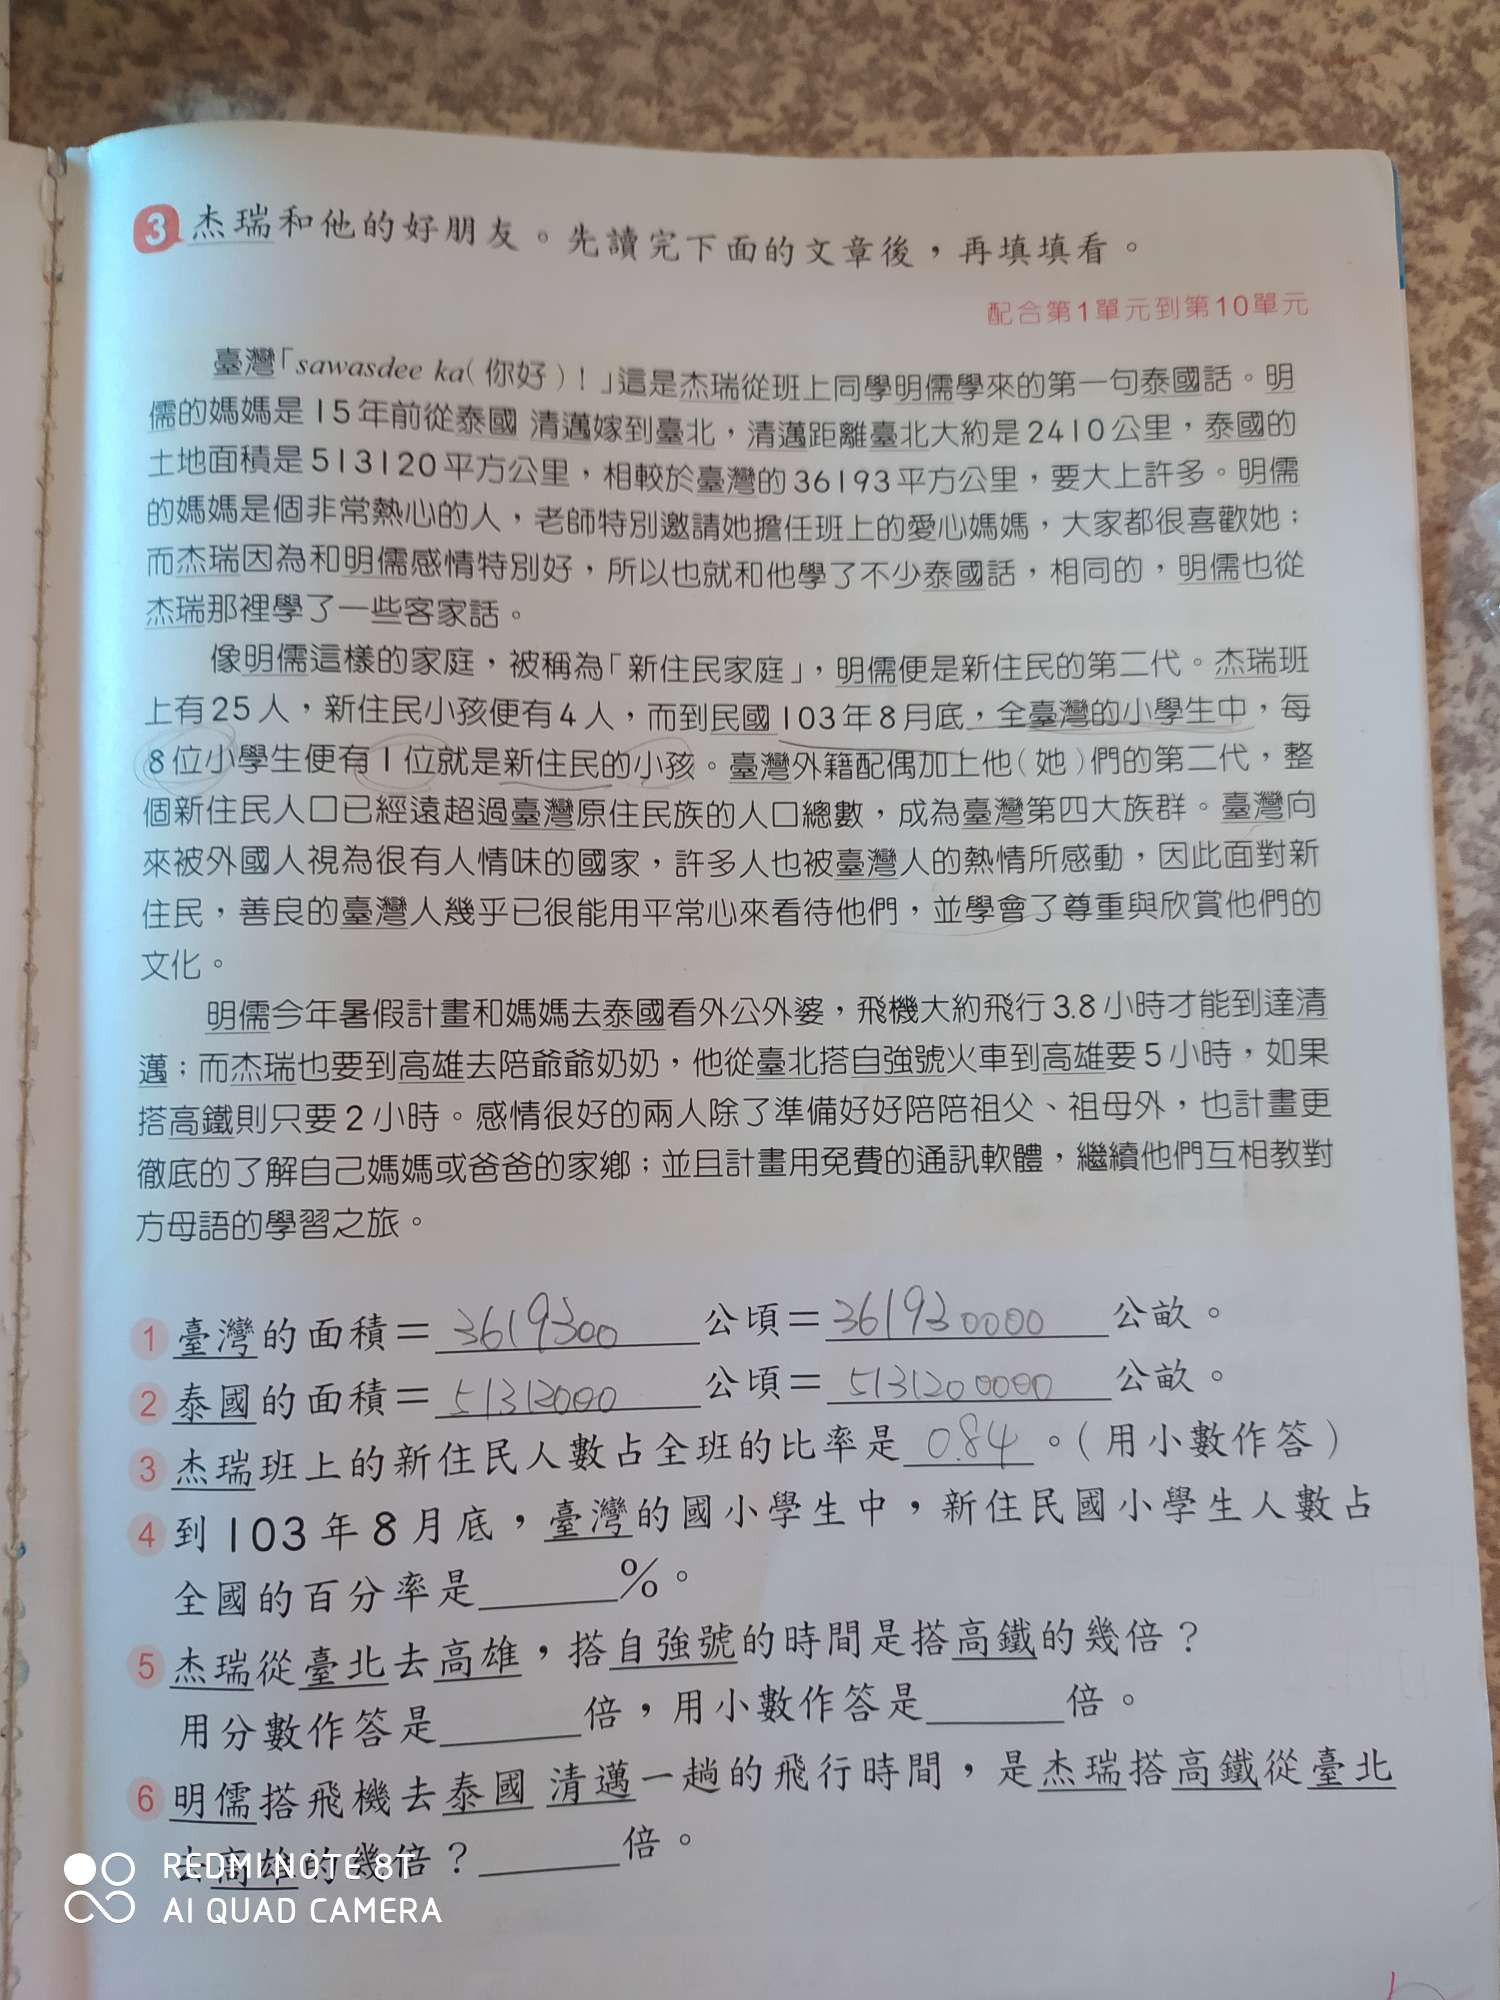 3 杰瑞和他的好朋友。先讀完下面的文章後，再填填看。
配合第1單元到第10單元
臺灣「sawasdee ka(你好)！」這是杰瑞從班上同學明儒學來的第一句泰國話。明
儒的媽媽是15年前從泰國 清邁嫁到臺北，清邁距離臺北大約是2410公里，泰國的
土地面積是513120平方公里，相較於臺灣的36193平方公里，要大上許多。明儒
的媽媽是個非常熱心的人，老師特別邀請她擔任班上的愛心媽媽，大家都很喜歡她；
而杰瑞因為和明儒感情特別好，所以也就和他學了不少泰國話，相同的，明儒也從
杰瑞那裡學了一些客家話。
像明儒這樣的家庭，被稱為「新住民家庭」，明儒便是新住民的第二代。杰瑞班
上有25人，新住民小孩便有4人，而到民國103年8月底，全臺灣的小學生中，每
8位小學生便有1位就是新住民的小孩。臺灣外籍配偶加上他(她)們的第二代，整
個新住民人口已經遠超過臺灣原住民族的人口總數，成為臺灣第四大族群。臺灣向
來被外國人視為很有人情味的國家，許多人也被臺灣人的熱情所感動，因此面對新
住民，善良的臺灣人幾乎已很能用平常心來看待他們，並學會了尊重與欣賞他們的
文化。
明儒今年暑假計畫和媽媽去泰國看外公外婆，飛機大約飛行3.8小時才能到達清
邁；而杰瑞也要到高雄去陪爺爺奶奶，他從臺北搭自強號火車到高雄要5小時，如果
搭高鐵則只要2小時。感情很好的兩人除了準備好好陪陪祖父、祖母外，也計畫更
徹底的了解自己媽媽或爸爸的家鄉；並且計畫用免費的通訊軟體，繼續他們互相教對
方母語的學習之旅。
1 臺灣的面積＝3619300公頃＝361930000公畝。
2 泰國的面積＝51312000公頃＝5131200000公畝。
3 杰瑞班上的新住民人數占全班的比率是0.84。(用小數作答)
4 到103年8月底，臺灣的國小學生中，新住民國小學生人數占
全國的百分率是______%。
5 杰瑞從臺北去高雄，搭自強號的時間是搭高鐵的幾倍？
用分數作答是______倍，用小數作答是______倍。
6 明儒搭飛機去泰國 清邁一趟的飛行時間，是杰瑞搭高鐵從臺北
去高雄的幾倍？______倍。
REDMI NOTE 8T
AI QUAD CAMERA